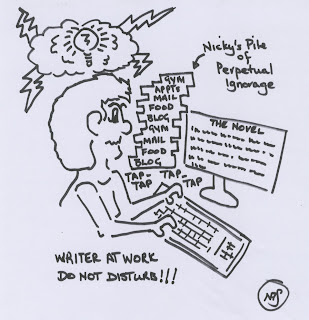 Nicky's Pile
of
Perpetual
Ignorage
GYM
APPTS
MAIL
FOOD
BLOG
GYM
MAIL
FOOD
BLOG
THE NOVEL
TAP-
TAP
TAP
TAP
WRITER AT WORK
DO NOT DISTURB!!!